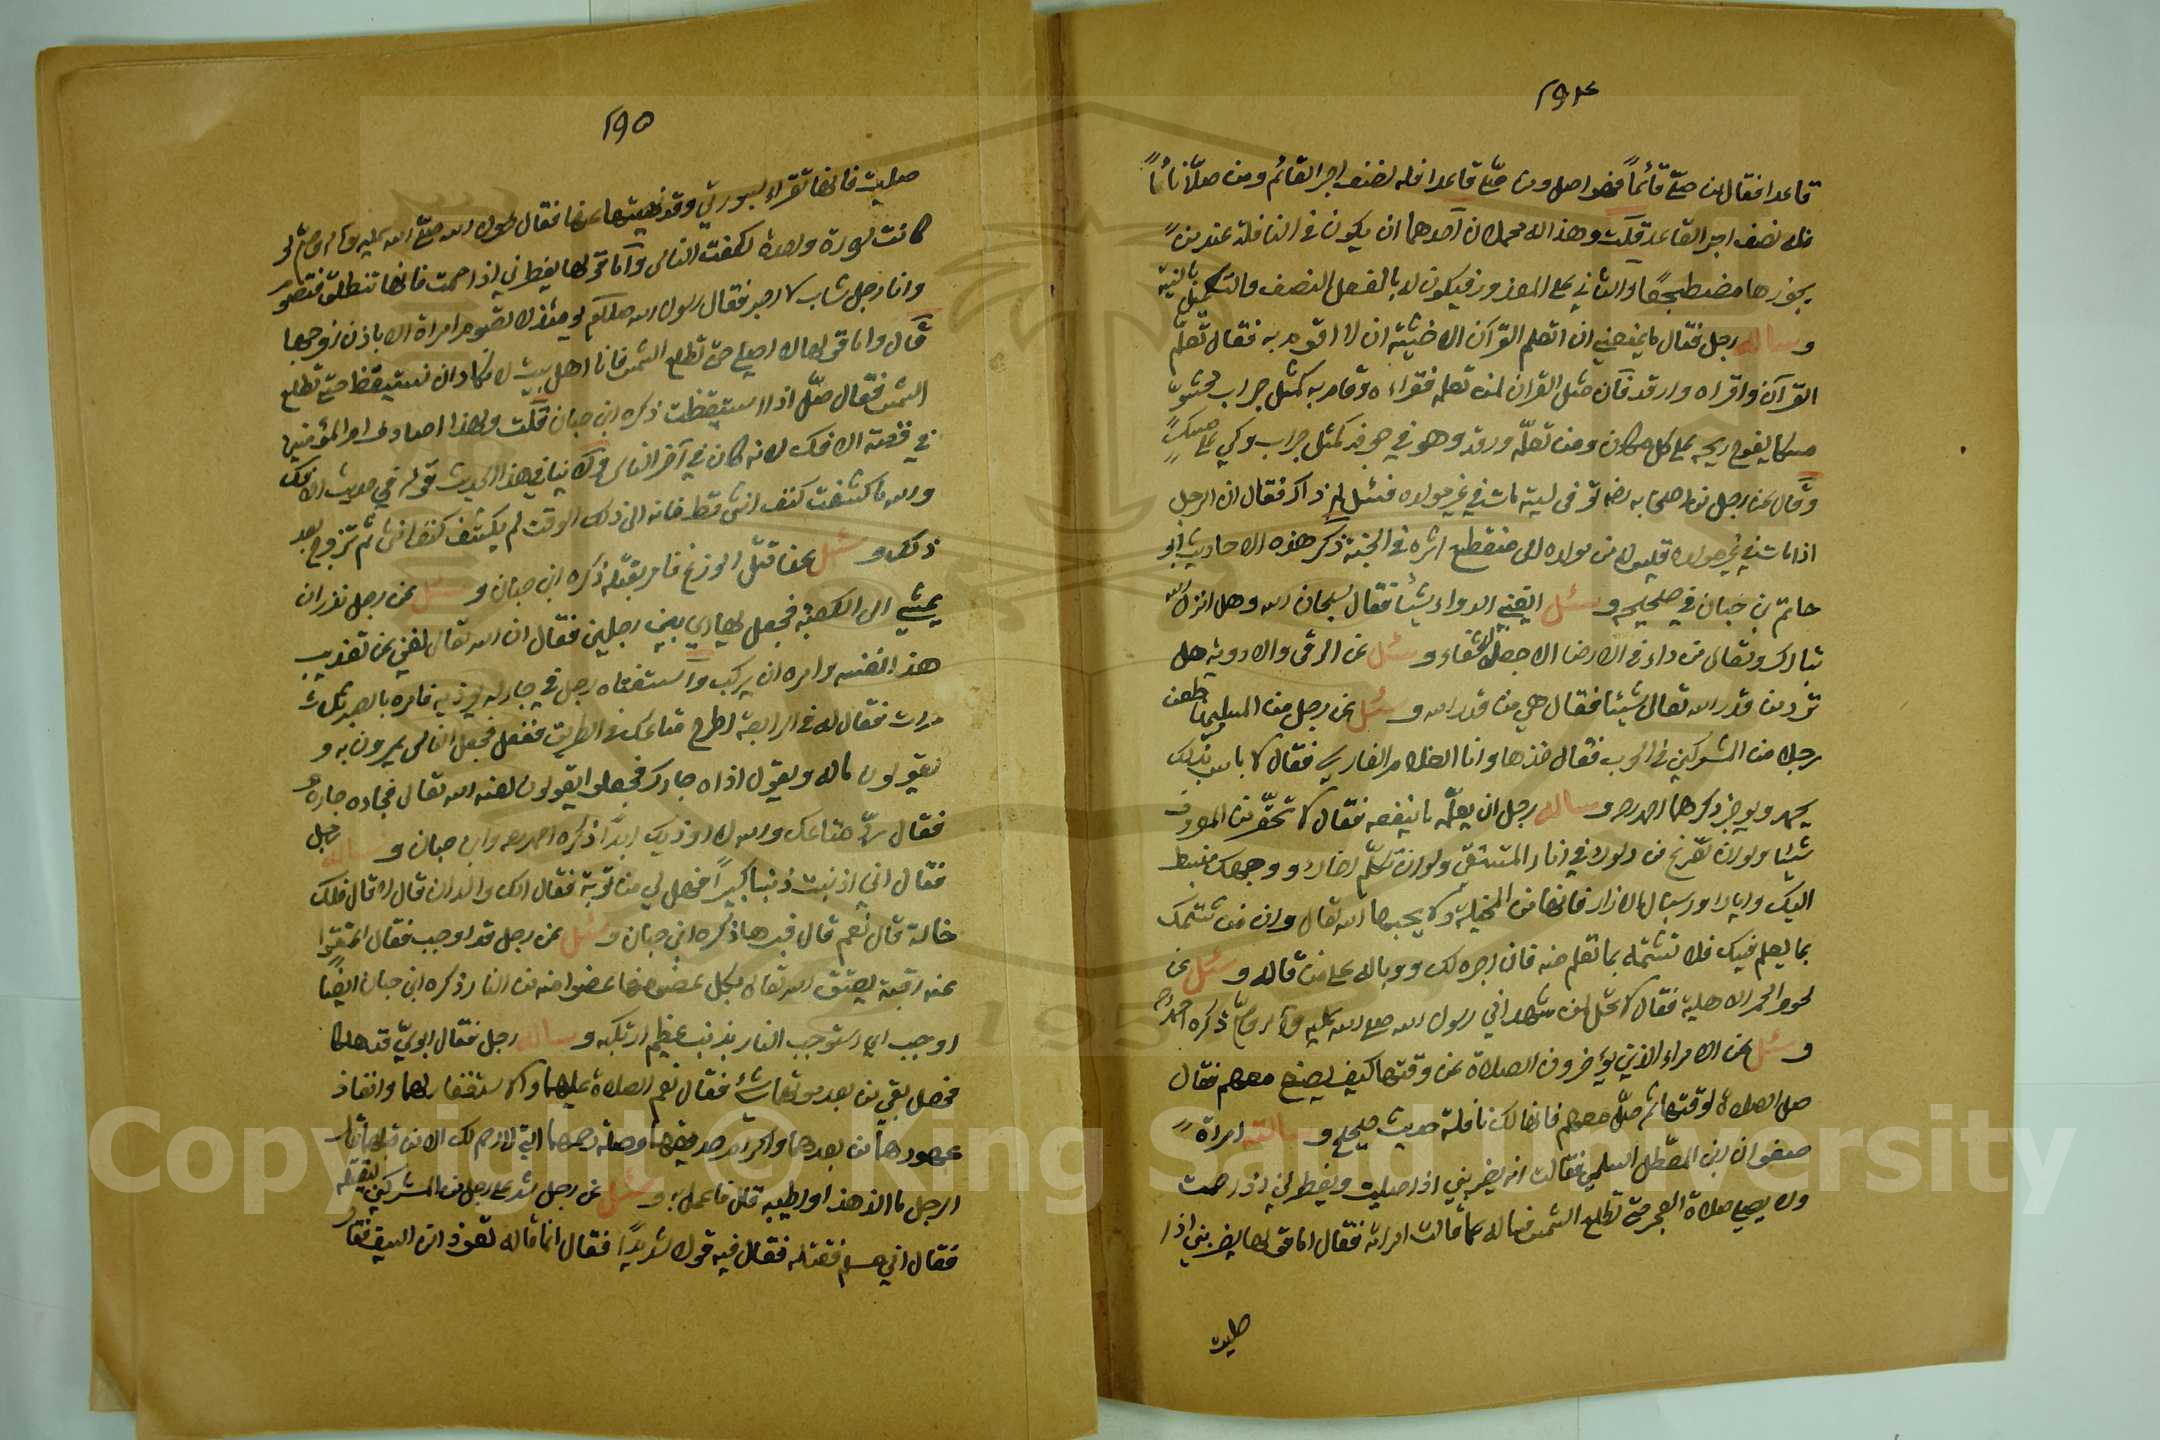 ٢٩٤
قاعدا فقال من صلى قائماً فهو افضل ومن صلى قاعدا فله نصف اجر القائم ومن صلى نائماً
فله نصف اجر القاعد قلت وهذا له محملان احدهما ان يكون في النافلة عند من
يجوزها مضطجعا والثاني على المعذور فيكون له بالفعل النصف والتكميل بالنية
وساله رجل فقال ما يمنعني ان اتعلم القرآن الا خشية ان لا اقوم به فقال تعلم
القرآن واقراه وارقد فان مثل القرآن لمن تعلمه فقراءه وقام به كمثل جراب محشو
مسكا يفوح ريحه على كل مكان ومن تعلمه ورقد وهو في جوفه كمثل جراب وكي على مسك
وقال عن رجل من اصحابه توفى ليته مات في غير مولده فسئل لم ذاك فقال ان الرجل
اذا مات في غير مولده قيس له من مولده الى منقطع اثره في الجنة ذكر هذه الاحاديث ابو
حاتم بن حبان في صحيحه وسئل ايغني الدواء شيئا فقال سبحان الله وهل انزل الله
تبارك وتعالى من داء في الارض الا جعل له شفاء وسئل عن الرقى والادوية هل
ترد من قدر الله تعالى شيئا فقال هي من قدر الله وسئل عن رجل من المسلمين طعن
رجلا من المشركين في الحرب فقال خذها وانا الغلام الفارسي فقال لا باس بذلك
يحمد ويوجر ذكرهما احمد وساله رجل ان يعلمه ما ينفعه فقال لا تحقرن من المعروف
شيئا ولو ان تفرغ من دلوك في اناء المستسقي ولو ان تكلم اخاك ووجهك منبسط
اليك واياك واسبال الازار فانها من المخيلة ولا يحبها الله تعالى وان من شتمك
بما يعلم فيك فلا تشتمه بما تعلم منه فان اجره لك ووباله على من قاله وسئل عن
لحوم الحمر الاهلية فقال لا تحل لمن شهد اني رسول الله صلى الله عليه وآله وسلم ذكره احمد
وسئل عن الامراء الذين يؤخرون الصلاة عن وقتها كيف يصنع معهم فقال
صل الصلاة لوقتها ثم صل معهم فانها لك نافلة حديث صحيح وسالته امراة
صفوان بن المعطل السلمي فقالت انه يضربني اذا صليت ويفطرني اذا صمت
ولا يصلي صلاة الفجر حتى تطلع الشمس فساله عما قالت امراته فقال اما قولها يضربني اذا
صليت
٢٩٥
صليت فانها تقراء بسورتي وقد نهيتها عنها فقال رسول الله صلى الله عليه وآله وسلم لو
كانت سورة واحدة لكفت الناس واما قولها يفطرني اذا صمت فانها تنطلق فتصوم
وانا رجل شاب لا اصبر فقال رسول الله يومئذ لا تصوم امراة الا باذن زوجها
قال واما قولها لا اصلي حتى تطلع الشمس فانا اهل بيت لا نكاد ان نستيقظ حتى تطلع
الشمس فقال صل اذا استيقظت ذكره ابن حبان قلت ولهذا صادف ام المؤمنين
في قصة الافك لانه كان في آخر الناس ولا ينافي هذا الحديث قوله في حديث الافك
والله ما كشفت كنف انثى قط فانه الى ذلك الوقت لم يكشف كنف انثى ثم تزوج بعد
ذلك وسئل عن قتل الوزغ فامر بقتله ذكره ابن حبان وسئل عن رجل نذر ان
يمشي الى الكعبة فجعل يهادى بين رجلين فقال ان الله تعالى لغني عن تعذيب
هذا نفسه وامره ان يركب واستفتاه رجل في جار له يوذيه فامره بالصبر ثلاث
مرات فقال له في الرابعة اطرح متاعك في الطريق ففعل فجعل الناس يمرون به و
يقولون ماله ويقول اذاه جاره فجعلوا يقولون لعنه الله تعالى فجاءه جاره
فقال رد متاعك والله لا اوذيك ابدا ذكره احمد وابن حبان وساله رجل
فقال اني اذنبت ذنبا كبيراً فهل لي من توبة فقال الك والدان قال لا قال فلك
خالة قال نعم قال فبرها ذكره ابن حبان وسئل عن رجل قد اوجب فقال اعتقوا
عنه رقبة يعتق الله تعالى بكل عضو منها عضوا منه من النار ذكره ابن حبان ايضا
اوجب اي استوجب النار بذنب عظيم ارتكبه وساله رجل فقال ابوي قد هلكا
فهل بقي من بعد موتهما شئ فقال نعم الصلاة عليهما والاستغفار لهما وانفاذ
عهودهما من بعدهما واكرام صديقهما وصلة رحمهما التي لا رحم لك الا من قبلهما قال
الرجل ما الذ هذا واطيبه قال فاعمل به وسئل عن رجل شد على رجل من المشركين ليقتله
فقال اني مسلم فقتله فقال فيه قولا شديداً فقال انما قاله تعوذا من السيف فقال
Copyright © King Saud University
1957